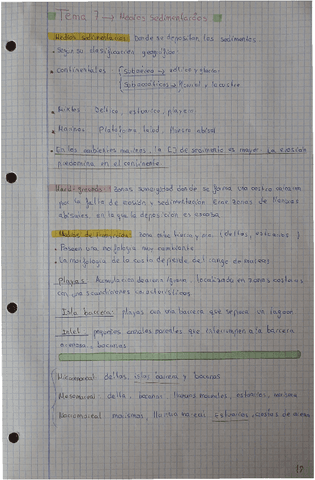 Tema 7 → Medios sedimentarios
Medios sedimentarios: donde se depositan los sedimentos.
Según su clasificación geográfica:
Continentales { Subaérea → eólico y glaciar
Subacuáticos → Fluvial y lacustre
Mixtos Deltas, estuarios, playas
Marinos Plataforma, talud, llanura abisal
En los ambientes marinos, la [ ] de sedimento es mayor. La erosión
predomina en el continente
Hard-grounds: zonas sumergidas donde se forma una costra
por la falta de erosión y sedimentación. Eran zonas de llanuras
abisales, en la que la deposición es escasa
Medios de transición: zona entre tierra y mar (deltas, estuarios)
Poseen una morfología muy cambiante
La morfología de la costa depende del rango de mareas
Playas: Acumulación de arena/grava, localizado en zonas costeras
con unas características
Isla barrera: playas con una barrera que separa un lagoon
Inlet: pequeños canales mareales que interrumpen a la barrera
, bocanas
Micromareal: deltas, islas barrera y bocanas
Mesomareal: delta, bocanas, llanuras mareales, estuarios, marisma
Macromareal: marismas, llanura mareal, estuarios,